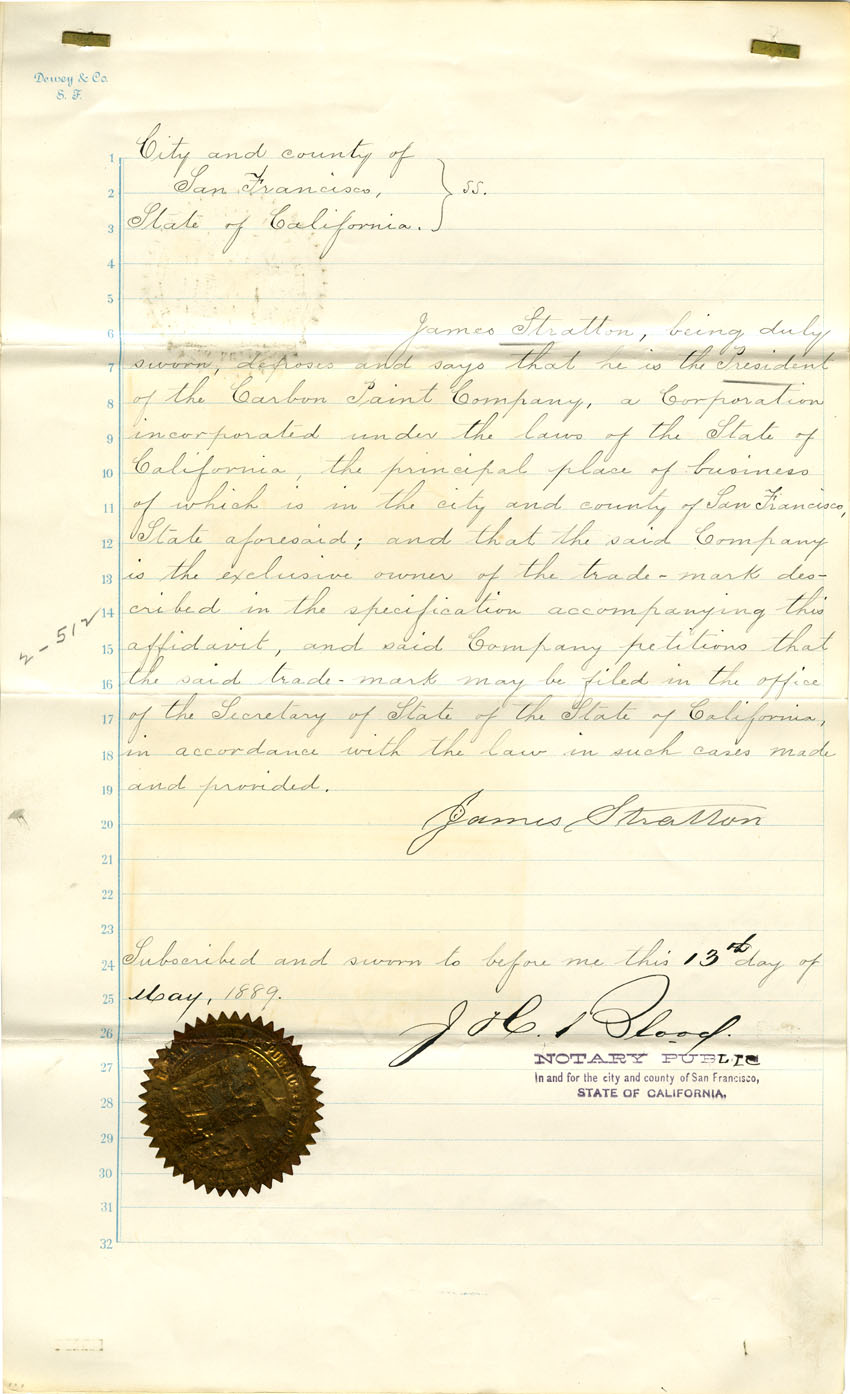 Dewey & Co.
S. F.
1 City and county of
2 San Francisco, } ss.
3 State of California.
4
5
6 James Stratton, being duly
7 sworn, deposes and says that he is the President
8 of the Carbon Paint Company, a Corporation
9 incorporated under the laws of the State of
10 California, the principal place of business
11 of which is in the city and county of San Francisco,
12 State aforesaid; and that the said Company
13 is the exclusive owner of the trade-mark des-
14 cribed in the specification accompanying this
15 affidavit, and said Company petitions that
16 the said trade-mark may be filed in the office
17 of the Secretary of State of the State of California,
18 in accordance with the law in such cases made
19 and provided.
20 James Stratton
21
22
23
24 Subscribed and sworn to before me this 13th day of
25 May, 1889.
26 J. H. Blood.
NOTARY PUBLIC
27 In and for the city and county of San Francisco,
STATE OF CALIFORNIA,
28
29
30
31
32
2-512